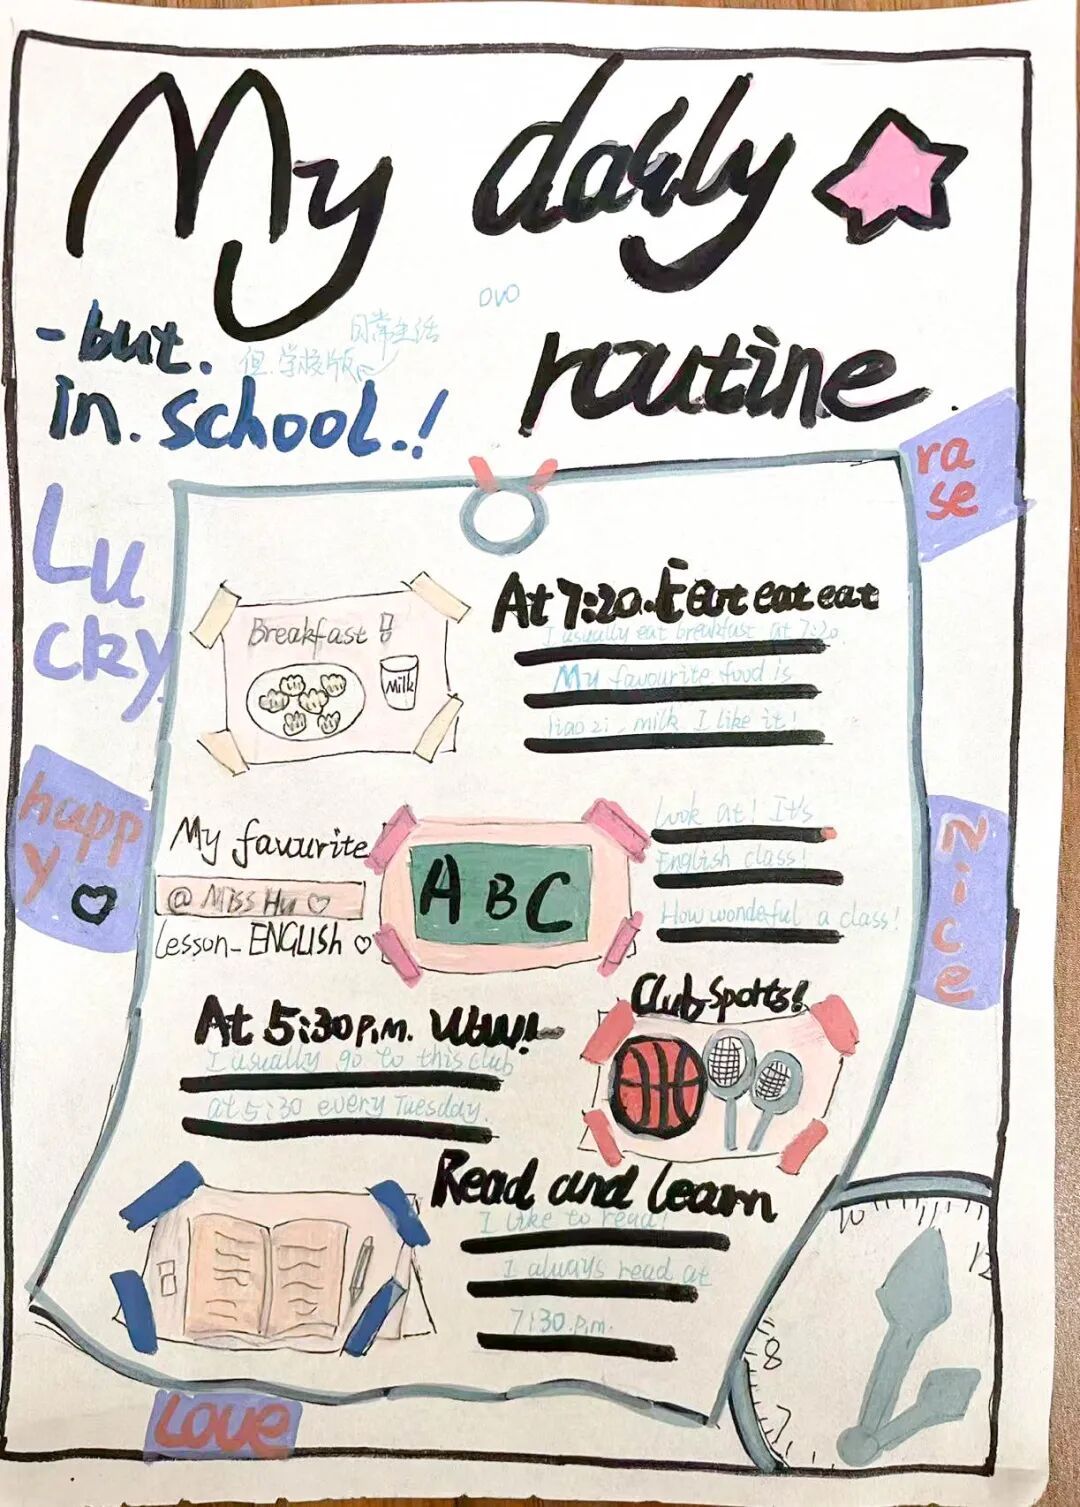 My daily
routine
ovo
日常生活
但.学校版
- but.
in. school.!
Lu
cky
ra
se
Breakfast
Milk
At 7:20. Eat eat eat
I usually eat breakfast at 7:20.
My favourite food is
jiao zi, milk I like it!
happ
y
My favourite
@ Miss Hu ♡
lesson- ENGLISH ♡
A B C
look at! It's
English class!
How wonderful a class!
Nice
At 5:30 p.m. Wow!
I usually go to this club
at 5:30 every Tuesday.
Club-Sports!
Read and learn
I like to read!
I always read at
7:30.p.m.
10
12
8
7
Love